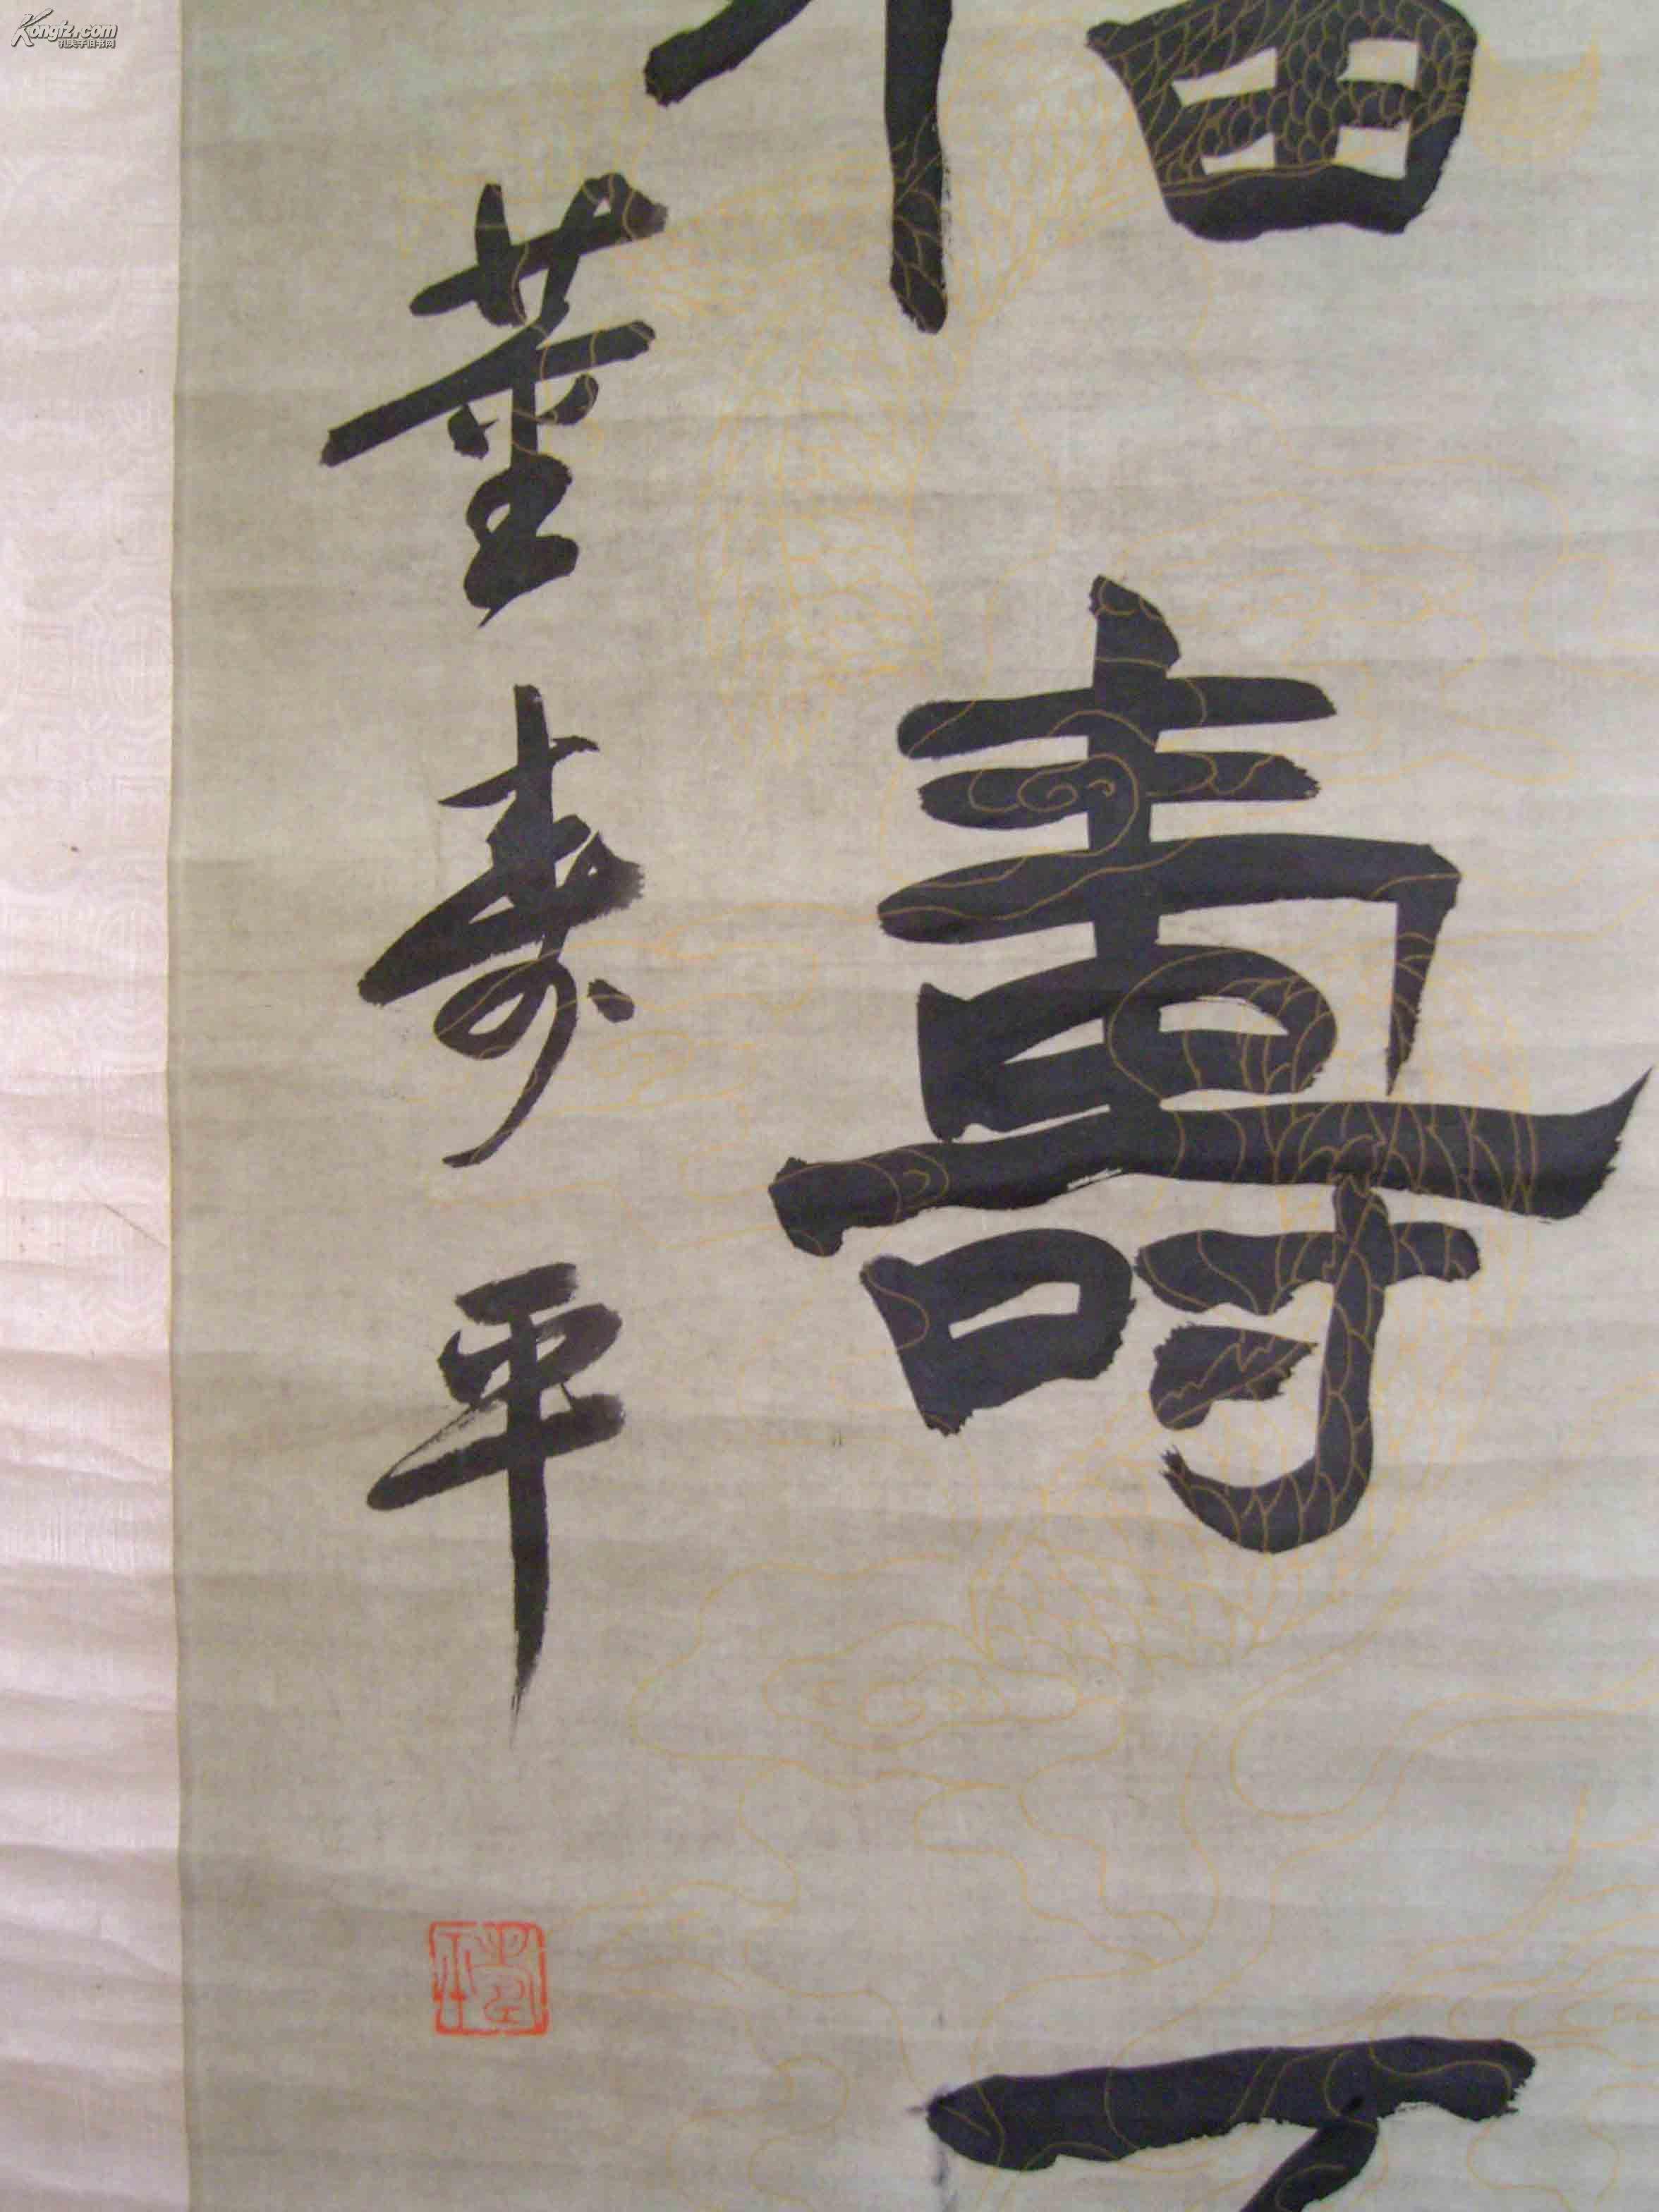 Kongfz.com
孔夫子旧书网
福壽
董寿平